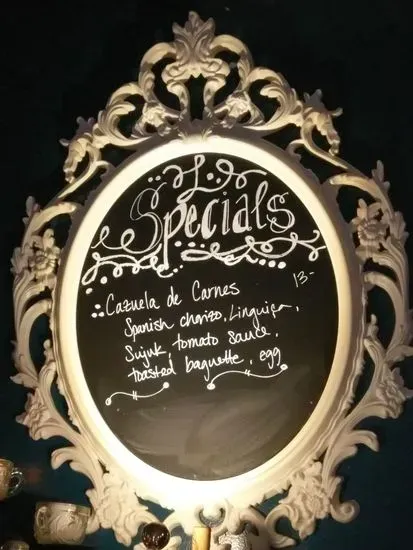 Specials
Cazuela de Carnes 13-
Spanish chorizo, Linguiça,
Sujuk, tomato sauce,
toasted baguette, egg